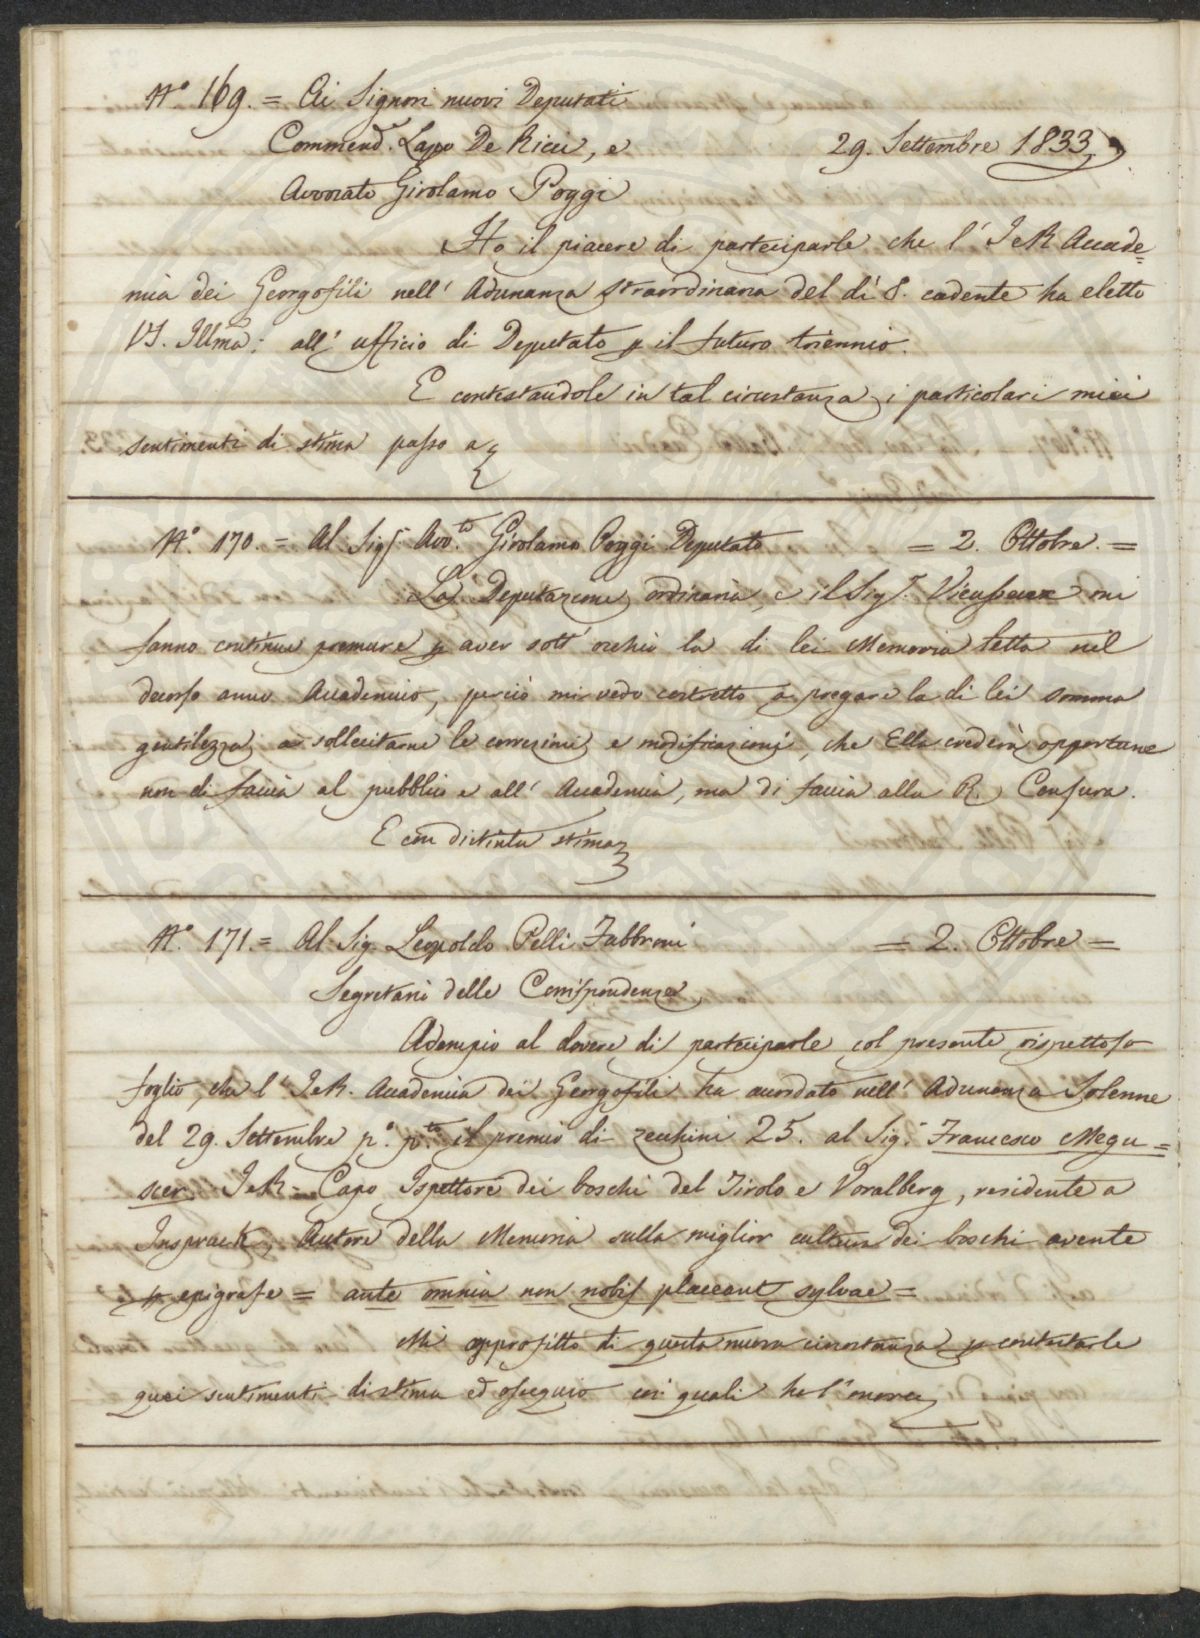 N.° 169. = Ai Signori nuovi Deputati
Commend.e Lapo De Ricci, e
29. Settembre 1833
Avvocato Girolamo Poggi
Ho il piacere di parteciparle che l' I e R Accade=
mia dei Georgofili nell' Adunanza straordinaria del dì 8. cadente ha eletto
VS. Illma: all' ufficio di Deputato p il futuro triennio.
E contestandole in tal circostanza i particolari miei
sentimenti di stima passo a
N.° 170 = Al Sigr Avv.to Girolamo Poggi Deputato = 2. Ottobre. =
La Deputazione ordinaria, e il Sigr. Vieusseux mi
fanno continue premure p aver sott' occhio la di lei Memoria letta nel
decorso anno Accademico, perciò mi vedo costretto a pregare la di lei somma
gentilezza a sollecitarne le correzioni e modificazioni, che Ella crederà opportune
non di faccia al pubblico e all' Accademia, ma di faccia alla R. Censura.
E con distinta stima
N.° 171 = Al Sig. Leopoldo Pelli Fabbroni = 2. Ottobre =
Segretario delle Corrispondenze
Adempio al dovere di parteciparle col presente rispettoso
foglio, che l' I e R. Accademia dei Georgofili ha accordato nell' Adunanza Solenne
del 29. Settembre p.° p.to il premio di zecchini 25. al Sig.r Francesco Megu=
scer I e R. Capo Ispettore dei boschi del Tirolo e Voralberg, residente a
Inspruck, Autore della Memoria sulla miglior cultura dei boschi avente
p epigrafe = ante omnia non nobis placeant sylvae =
Mi approfitto di questa nuova circostanza p contestarle
quei sentimenti di stima ed ossequio coi quali ho l'onore